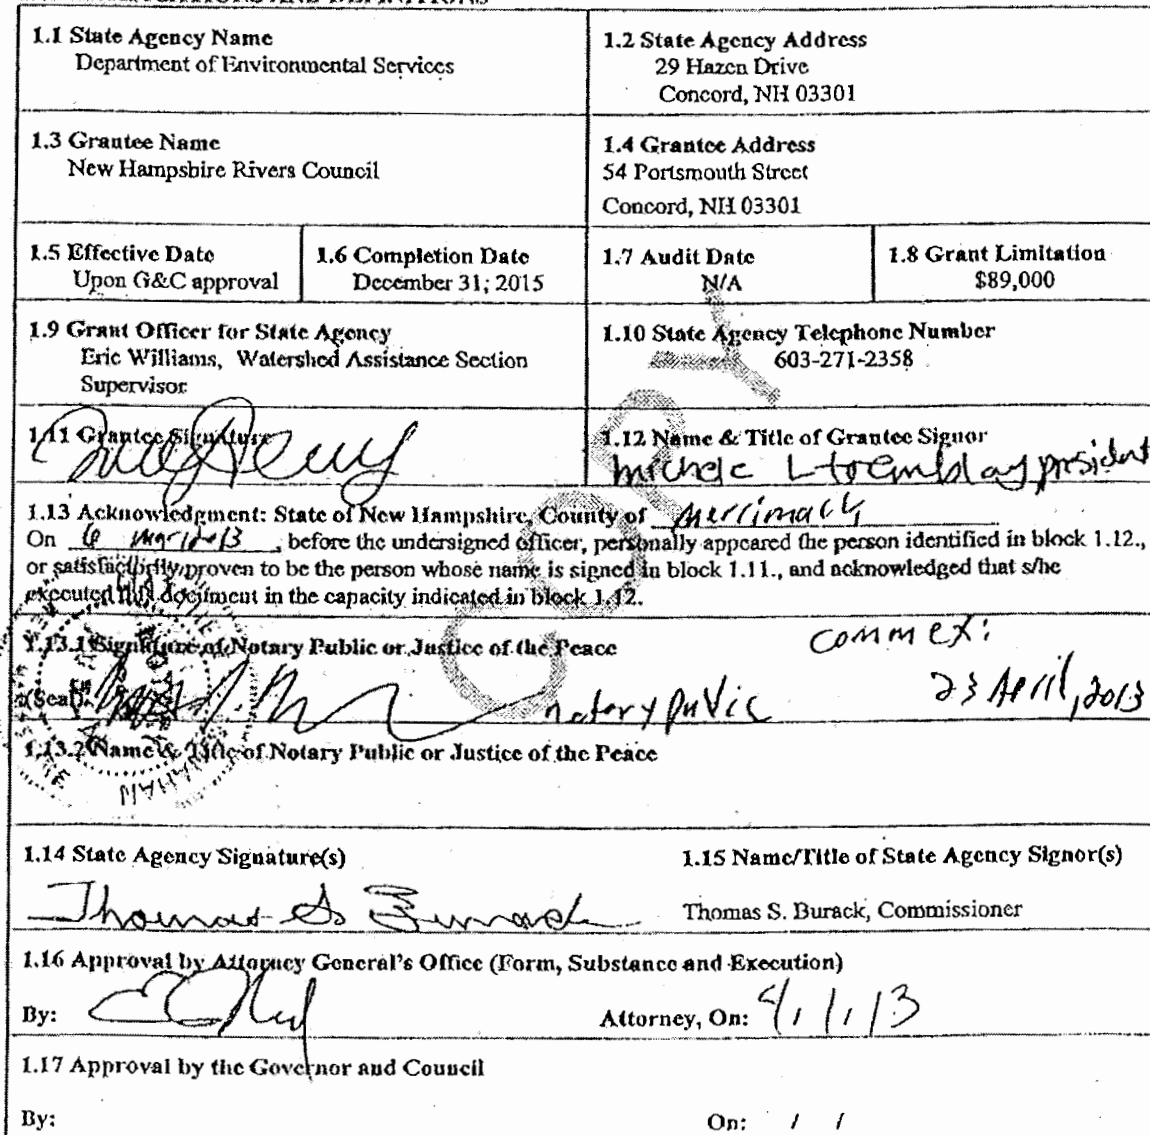 1.1 State Agency Name
Department of Environmental Services
1.2 State Agency Address
29 Hazen Drive
Concord, NH 03301
1.3 Grantee Name
New Hampshire Rivers Council
1.4 Grantee Address
54 Portsmouth Street
Concord, NH 03301
1.5 Effective Date
Upon G&C approval
1.6 Completion Date
December 31; 2015
1.7 Audit Date
N/A
1.8 Grant Limitation
$89,000
1.9 Grant Officer for State Agency
Eric Williams, Watershed Assistance Section
Supervisor
1.10 State Agency Telephone Number
603-271-2358
1.11 Grantee Signature
1.12 Name & Title of Grantee Signor
Michele L Tremblay president
1.13 Acknowledgment: State of New Hampshire, County of Merrimack
On 6 , before the undersigned officer, personally appeared the person identified in block 1.12.,
or satisfactorily proven to be the person whose name is signed in block 1.11., and acknowledged that s/he
executed this document in the capacity indicated in block 1.12.
1.13.1 Signature of Notary Public or Justice of the Peace
comm ex:
(Seal) notary public 23 April, 2013
1.13.2 Name & Title of Notary Public or Justice of the Peace
1.14 State Agency Signature(s)
Thomas S Burack
1.15 Name/Title of State Agency Signor(s)
Thomas S. Burack, Commissioner
1.16 Approval by Attorney General's Office (Form, Substance and Execution)
By: Attorney, On: 4/1/13
1.17 Approval by the Governor and Council
By: On: / /
COPY